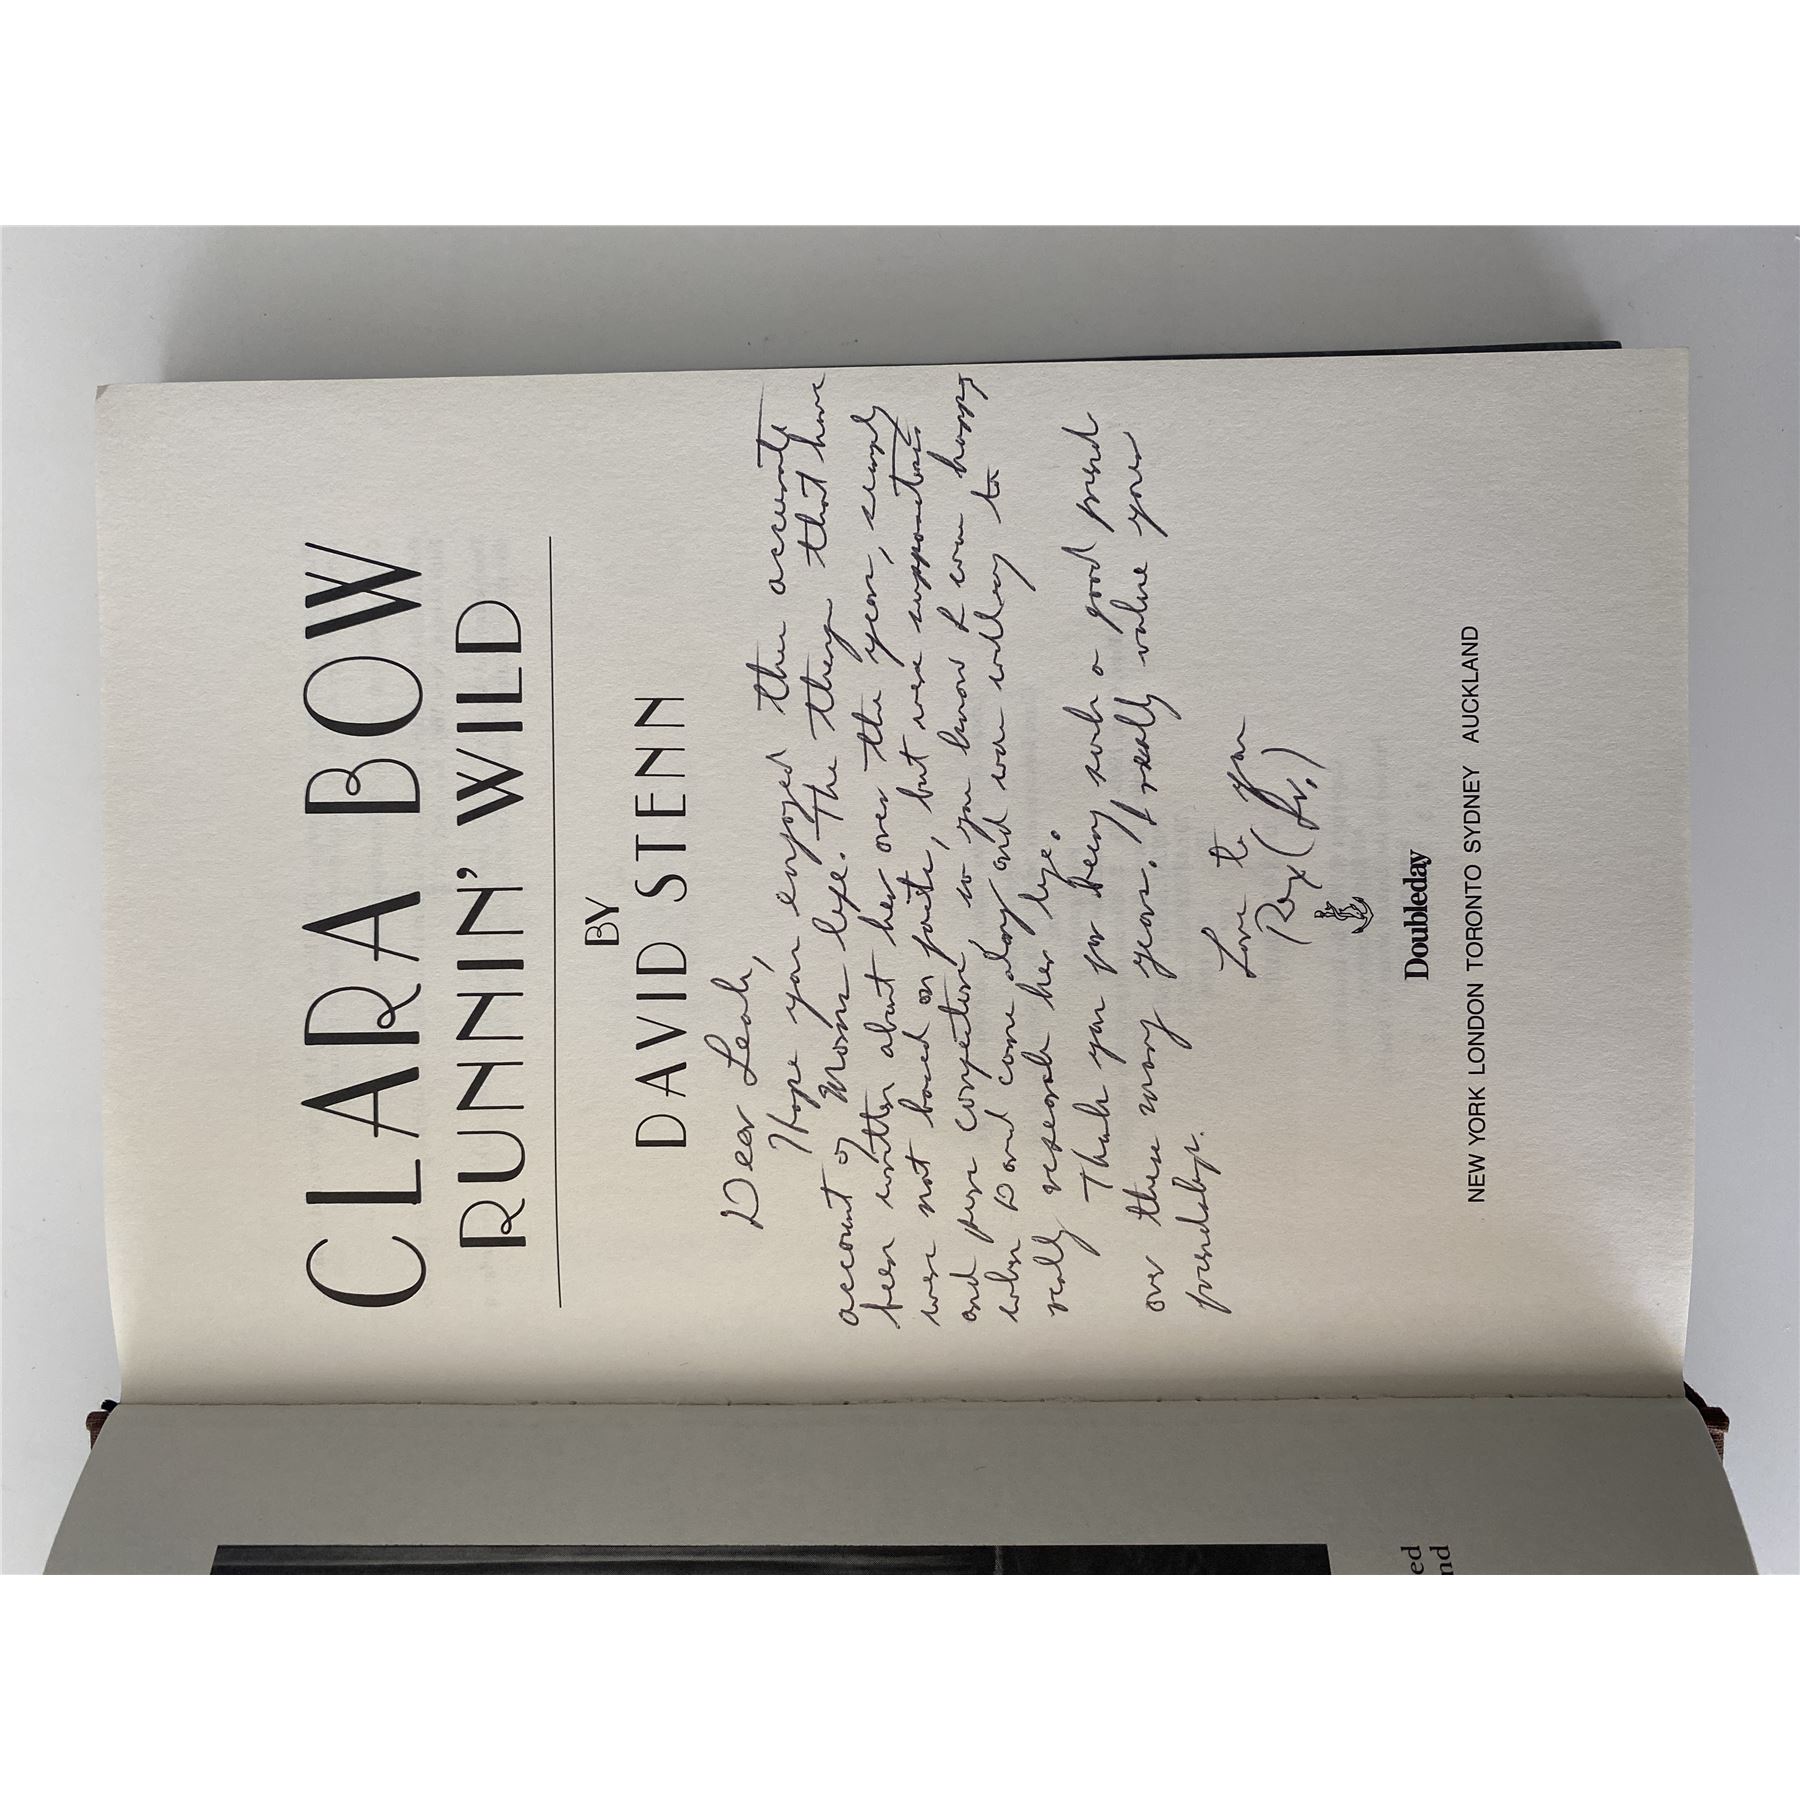 CLARA BOW
RUNNIN' WILD
BY
DAVID STENN
Dear Leah,
Hope you enjoyed the accurate
account of Moms life. The things that have
been written about her over the years, simply
were not based on facts, but were suppositions
and pure conjecture so you know I was happy
when David came along and was willing to
really research her life.
Thank you for being such a good friend
over these many years. I really value your
friendship.
Love to you
Rex (Jr.)
Doubleday
NEW YORK LONDON TORONTO SYDNEY AUCKLAND
ed
nd